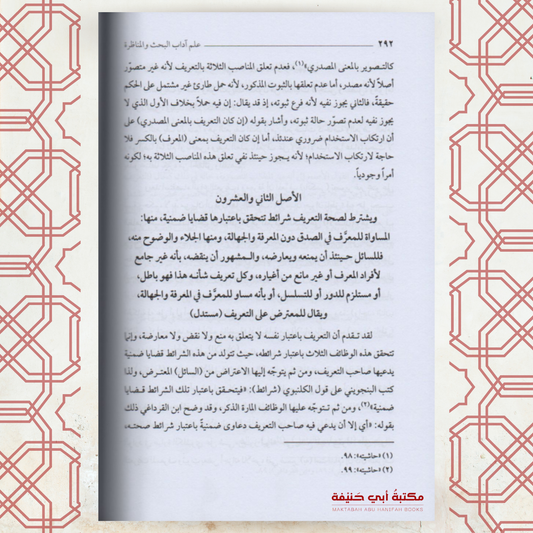 ٢٩٢ علم آداب البحث والمناظرة
كالتصوير بالمعنى المصدري»(١)، فعدم تعلق المناصب الثلاثة بالتعريف لأنه غير متصوّر
أصلاً لأنه مصدر، أما عدم تعلقها بالثبوت المذكور، لأنه حمل طارئ غير مشتمل على الحكم
حقيقةً، فالثاني يجوز نفيه لأنه فرع ثبوته، إذ قد يقال: إن فيه حملاً بخلاف الأول الذي لا
يجوز نفيه لعدم تصوّر حالة ثبوته، وأشار بقوله (إن كان التعريف بالمعنى المصدري) على
أن ارتكاب الاستخدام ضروري عندئذ، أما إن كان التعريف بمعنى (المعرف) بالكسر فلا
حاجة لارتكاب الاستخدام؛ لأنه يجوز حينئذ نفي تعلق هذه المناصب الثلاثة به؛ لكونه
أمراً وجودياً.
الأصل الثاني والعشرون
ويشترط لصحة التعريف شرائط تتحقق باعتبارها قضايا ضمنية، منها:
المساواة للمعرَّف في الصدق دون المعرفة والجهالة، ومنها الجلاء والوضوح منه،
فللسائل حينئذ أن يمنعه ويعارضه، والمشهور أن ينقضه، بأنه غير جامع
لأفراد المعرف أو غير مانع من أغياره، وكل تعريف شأنه هذا فهو باطل،
أو مستلزم للدور أو للتسلسل، أو بأنه مساو للمعرَّف في المعرفة والجهالة،
ويقال للمعترض على التعريف (مستدل)
لقد تقدم أن التعريف باعتبار نفسه لا يتعلق به منع ولا نقض ولا معارضة، وإنما
تتحقق هذه الوظائف الثلاث باعتبار شرائطه، حيث تتولد من هذه الشرائط قضايا ضمنية
يدعيها صاحب التعريف، ومن ثم يتوجّه إليها الاعتراض من (السائل) المعترض، ولذا
كتب البنجويني على قول الكلنبوي (شرائط): «فيتحقق باعتبار تلك الشرائط قضايا
ضمنية»(٢)، ومن ثم تتوجّه عليها الوظائف المارة الذكر، وقد وضح ابن القرداغي ذلك
بقوله: «أي إلا أن يدعي فيه صاحب التعريف دعاوى ضمنيةً باعتبار شرائط صحته،
(١) «حاشيته»: ٩٨.
(٢) «حاشيته»: ٩٩.
مكتبة أبي حنيفة
MAKTABAH ABU HANIFAH BOOKS